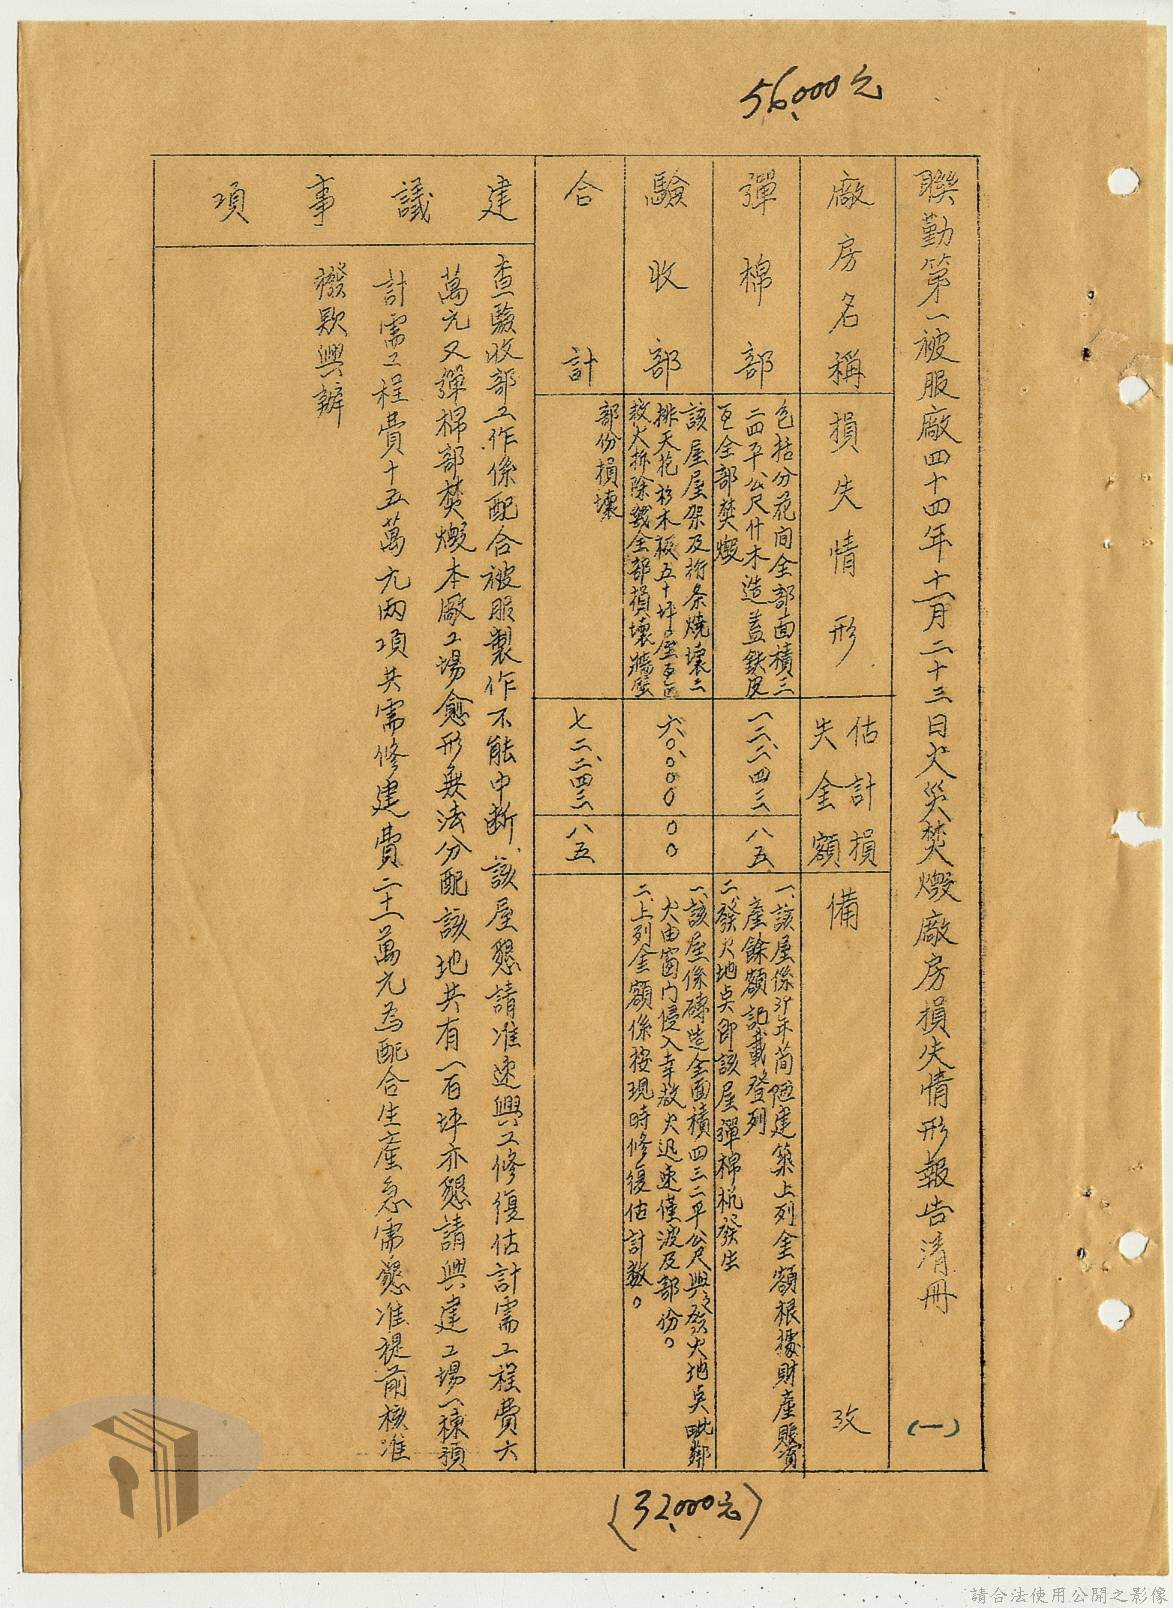 56,000元
聯勤第一被服廠四十四年十一月二十三日火災焚燬廠房損失情形報告清冊 (一)
廠房名稱
損失情形
估計損
失金額
備 攷
彈棉部
包括分花间全部面積三
二四平公尺什木造蓋鉄皮
瓦全部焚燬
一二、二四三 八五
一、該屋係39年简陋建築上列金額根據財產賬資
產餘額記載登列
二、發火地點即該屋彈棉机發生
驗收部
該屋屋架及桁条燒壞三
排天花杉木板五十坪屋面
救火拆除幾全部損壞牆壁
部份損壞
六〇、〇〇〇 〇〇
一、該屋係磚造全面積四三二平公尺與發火地點毗鄰
火由窗门侵入幸救火迅速僅波及部份。
二、上列金額係按現時修復估計数。
合計
七二、二四三 八五
建議事項
查驗收部工作係配合被服製作不能中断，該屋懇請准速興工修復估計需工程費六
萬元又彈棉部焚燬本廠工場愈形無法分配該地共有一百坪亦懇請興建工場一棟預
計需工程費十五萬元兩項共需修建費二十一萬元為配合生產急需懇准提前核准
撥欵興辦
(32,000元)
請合法使用公開之影像